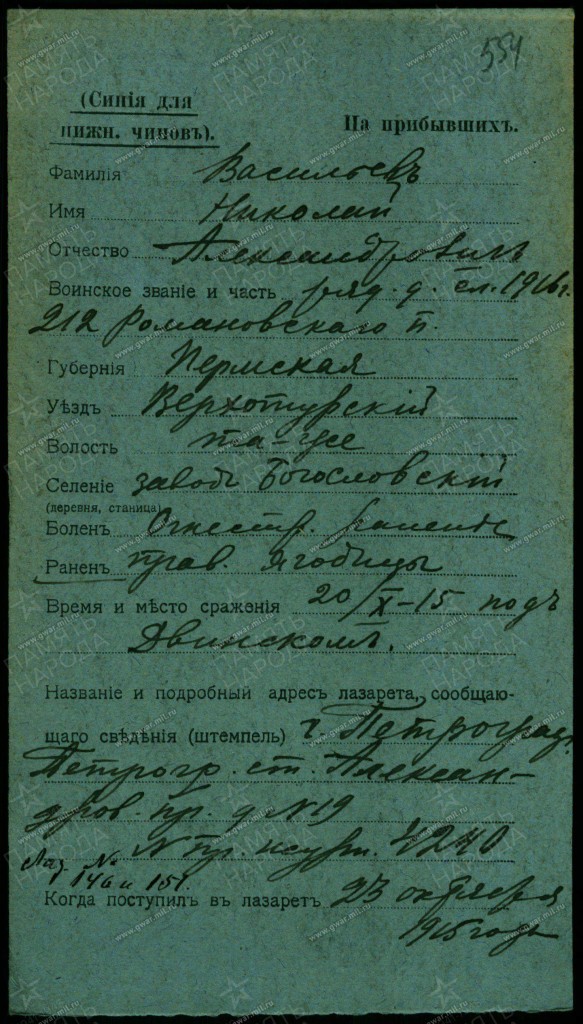 554
(Синія для
нижн. чиновъ).
На прибывшихъ.
Фамилія Васильевъ
Имя Николай
Отчество Александровичъ
Воинское званіе и часть ряд. д. сл. 1916 г.
212 Романовскаго п.
Губернія Пермская
Уѣздъ Верхотурскій
Волость та-же
Селеніе заводъ Богословскій
(деревня, станица)
Боленъ Огнестр. раненіе
Раненъ прав. ягодицы
Время и мѣсто сраженія 20/X-15 подъ
Двинскомъ.
Названіе и подробный адресъ лазарета, сообщаю-
щаго свѣдѣнія (штемпель) г. Петроград.
Петрогр. ст. Алексан-
дров. пр. д. №19
№ пр. 4240
Лаз. №
146 и 151.
Когда поступилъ въ лазаретъ 23 октября
1915 года